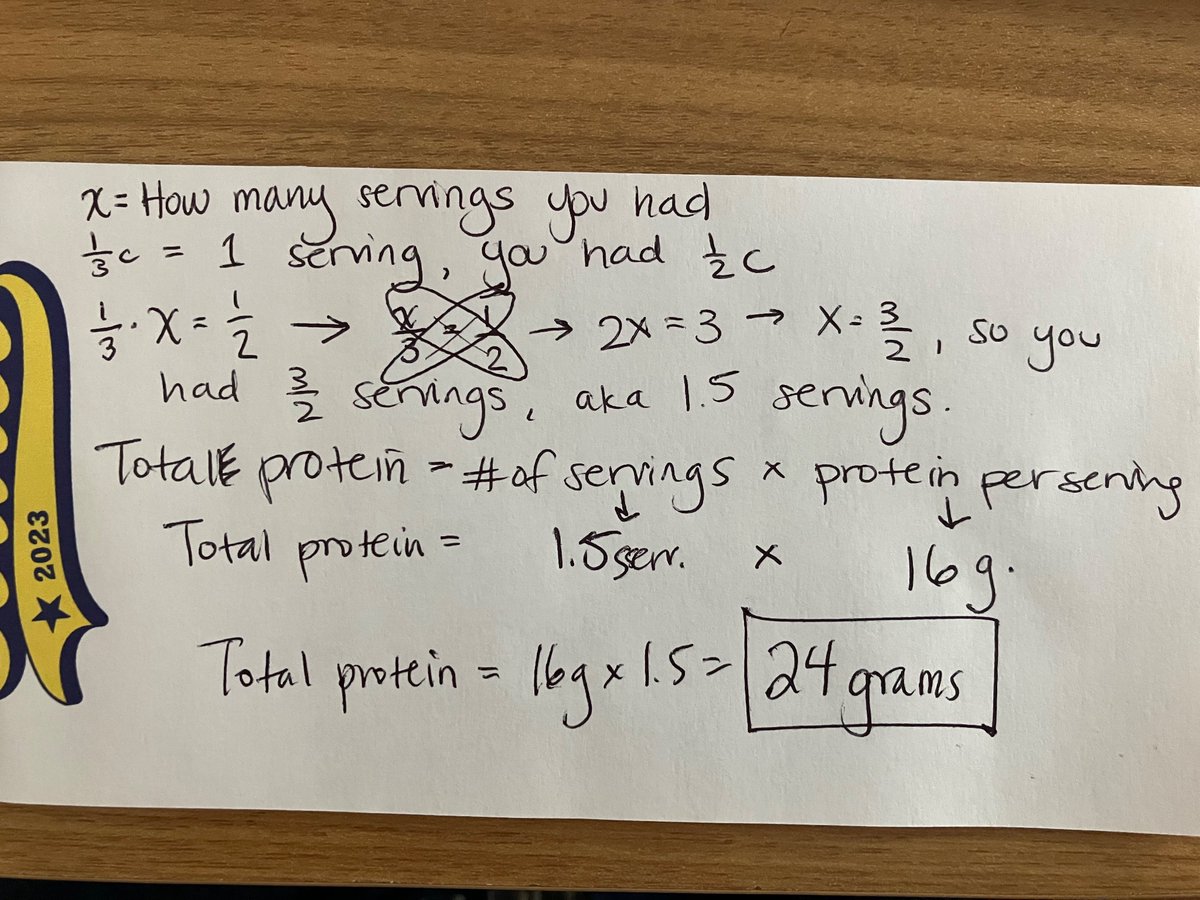 x = How many servings you had
1/3 c = 1 serving, you had 1/2 c
1/3 · x = 1/2 → x/3 = 1/2 → 2x = 3 → x = 3/2, so you
had 3/2 servings, aka 1.5 servings.
Total protein = # of servings x protein per serving
↓ ↓
Total protein = 1.5 serv. x 16g.
Total protein = 16g x 1.5 = 24 grams
★ 2023